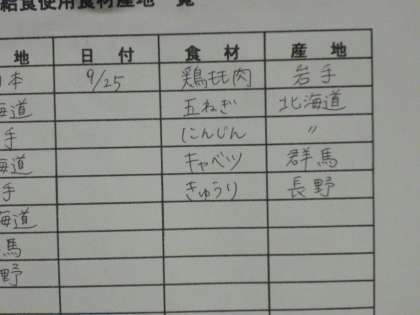 給食使用食材産地一覧
地 日付 食材 産地
本 9/25 鶏もも肉 岩手
海道 玉ねぎ 北海道
手 にんじん 〃
海道 キャベツ 群馬
手 きゅうり 長野
海道
馬
野